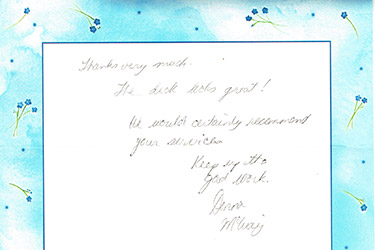 Thanks very much.
The deck looks great!
We would certainly recommend
your services
Keep up the
good work.
Donna